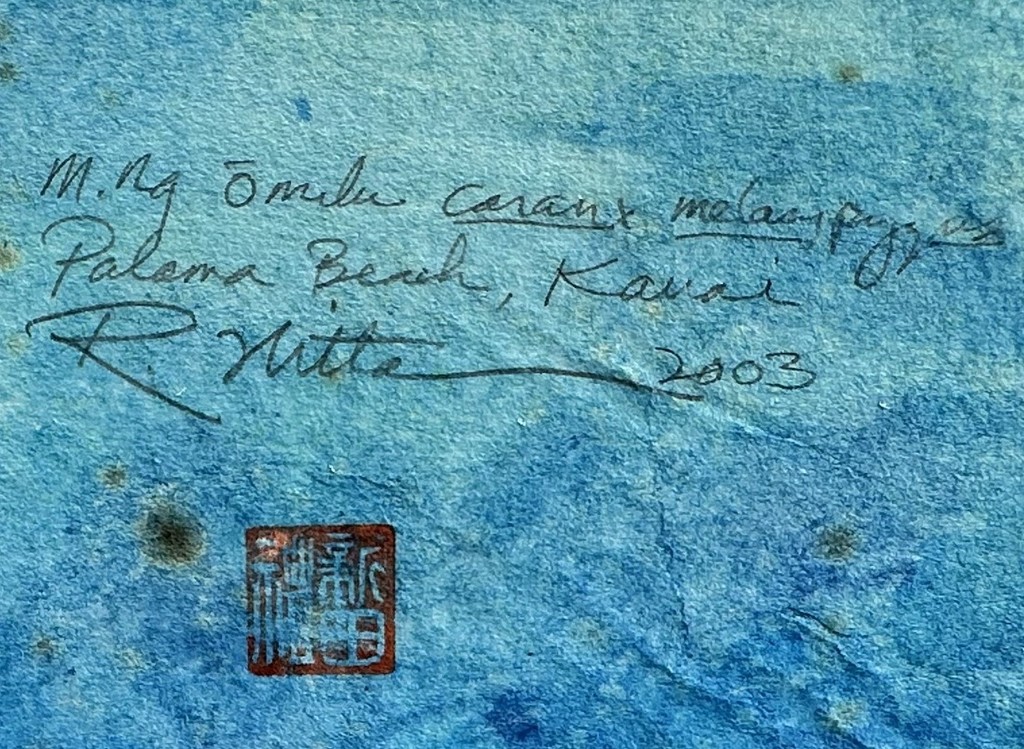 M. Ng Ōmilu caranx melampygus
Paloma Beach, Kauai
R. Nitta 2003
新田